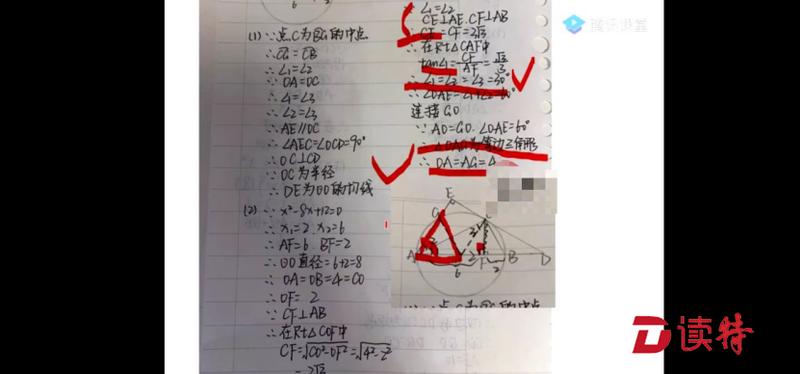 6
(1) ∵点C为BG的中点
∴CG=CB
∴∠1=∠2
∵OA=OC
∴∠1=∠3
∴∠2=∠3
∴AE∥OC
∴∠AEC=∠OCD=90°
∴OC⊥CD
∵OC为半径
∴DE为⊙O的切线
(2) ∵x²-8x+12=0
∴x₁=2 x₂=6
∴AF=6 BF=2
∴⊙O直径=6+2=8
∴OA=OB=4=CO
∴OF=2
∵CF⊥AB
∴在Rt△COF中
CF=√CO²-OF²=√4²-2²
=2√3
∵∠1=∠2
CE⊥AE.CF⊥AB
∴CE=CF=2√3
∴在Rt△CAF中
tan∠1=CF/AF=√3/3
∴∠1=∠2=∠3=30°
∴∠OAE=∠1+∠2=60°
连接GO
∵AO=GO.∠OAE=60°
∴△OAG为等边三角形
∴OA=AG=4
E
G
A
F
B
D
6
2
腾讯课堂
读特